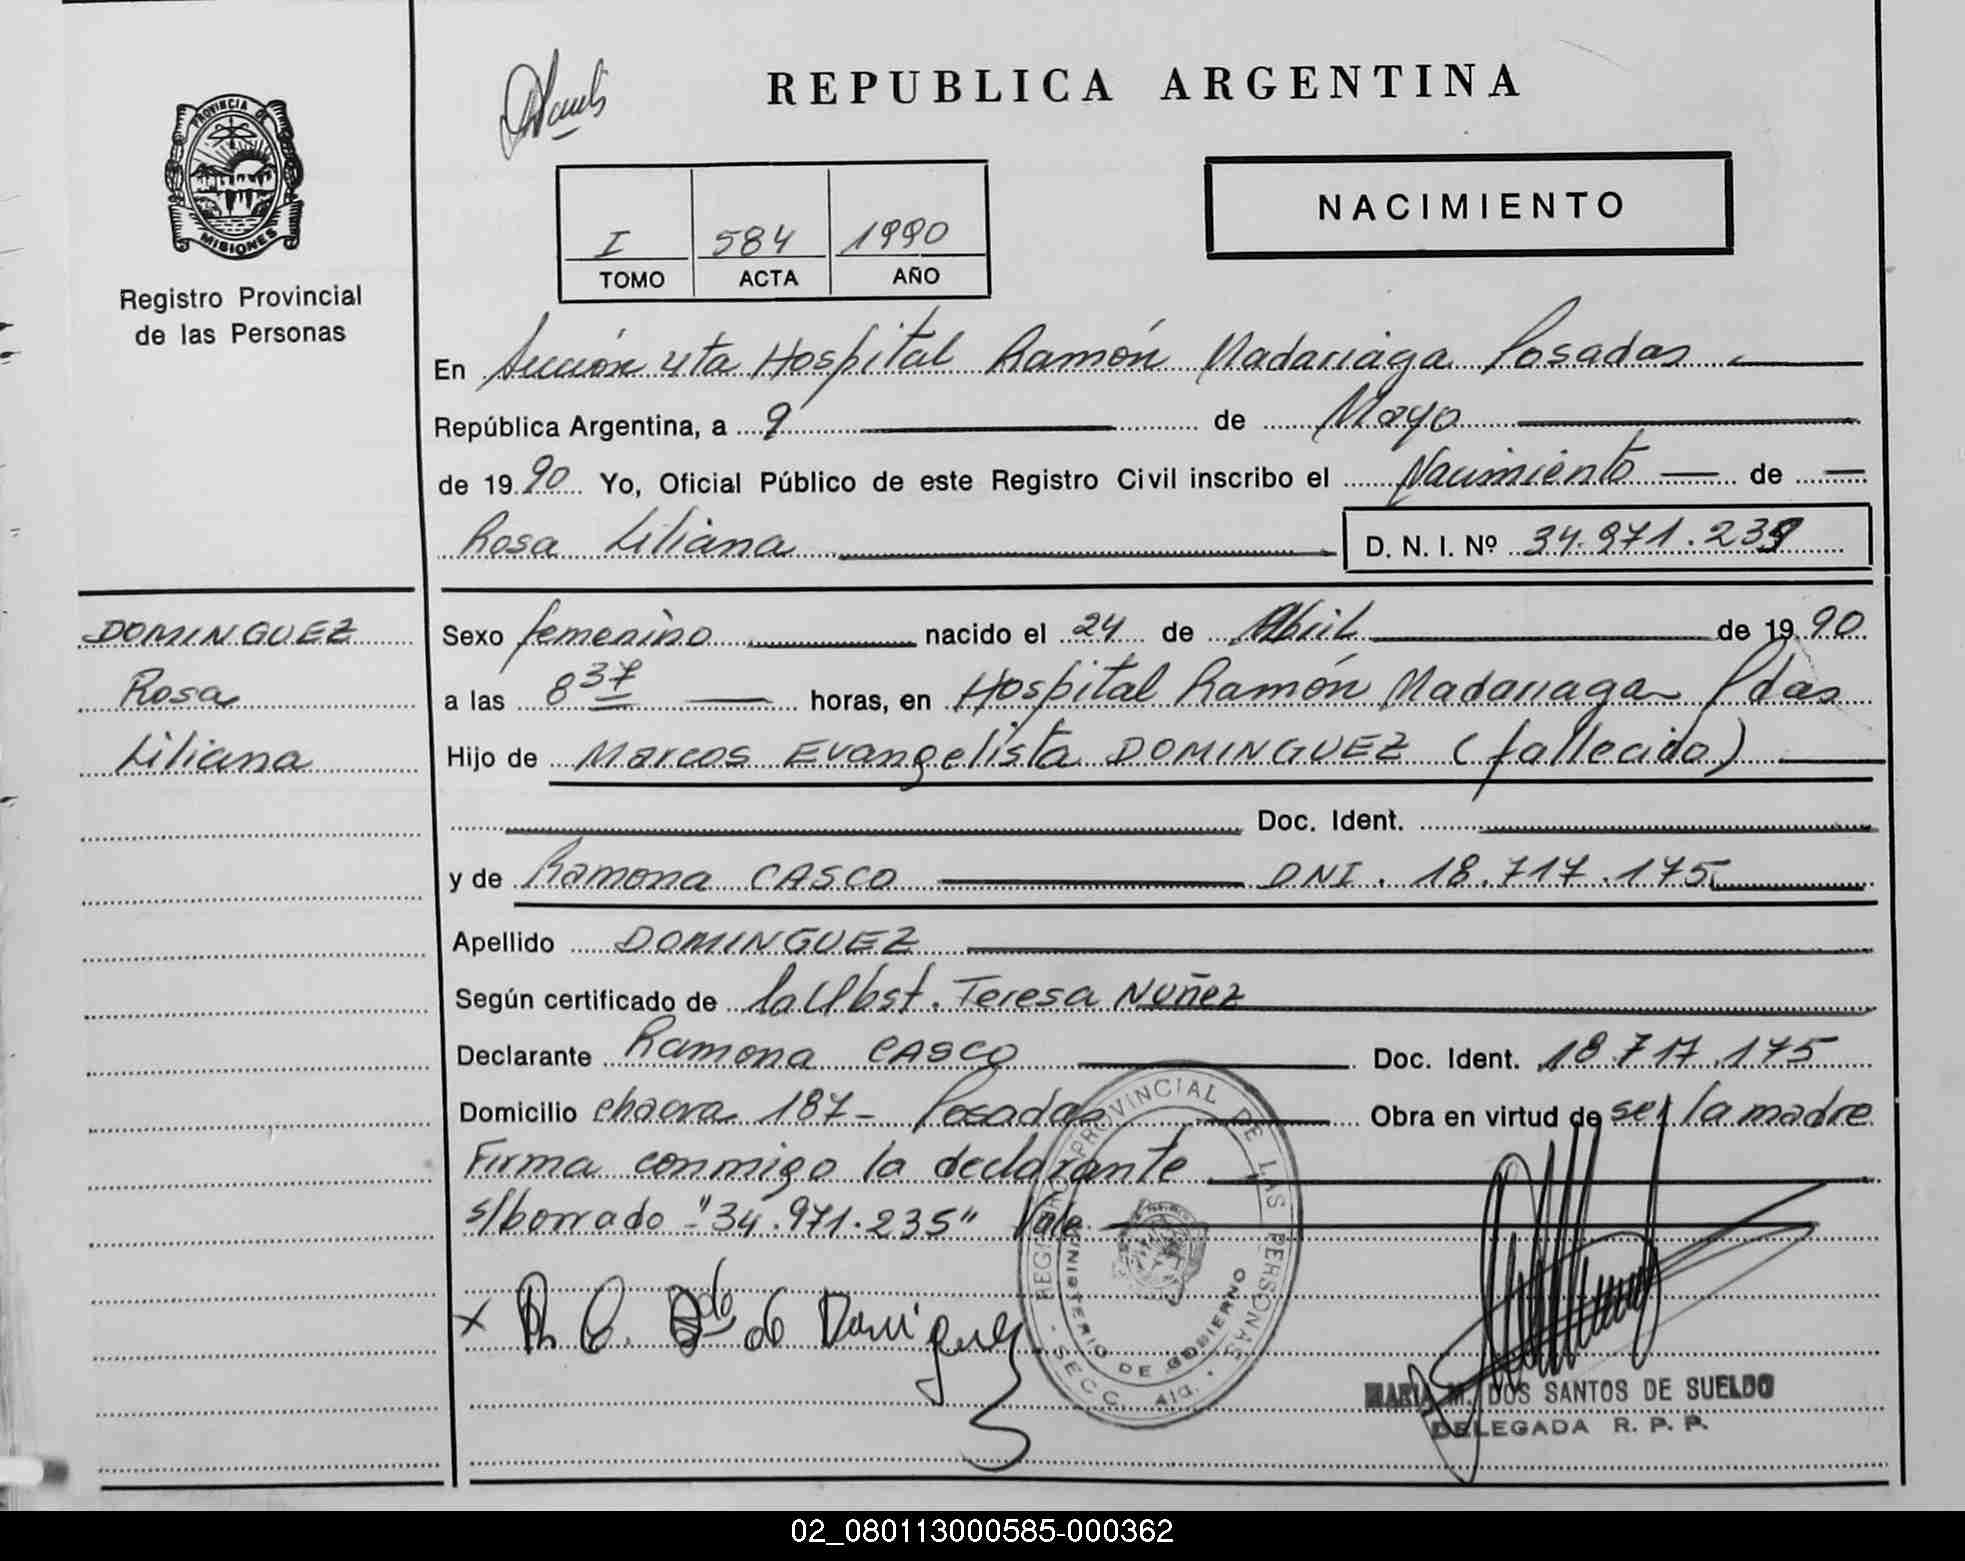 PROVINCIA DE
MISIONES
Registro Provincial
de las Personas
REPUBLICA ARGENTINA
NACIMIENTO
I 584 1990
TOMO ACTA AÑO
En Sección 4ta Hospital Ramón Madariaga Posadas
República Argentina, a 9 de Mayo
de 1990 Yo, Oficial Público de este Registro Civil inscribo el Nacimiento de
Rosa Liliana D. N. I. Nº 34.971.235
DOMINGUEZ
Rosa
Liliana
Sexo femenino nacido el 24 de Abril de 1990
a las 8 37 horas, en Hospital Ramón Madariaga Pdas
Hijo de Marcos Evangelista DOMINGUEZ (fallecido)
Doc. Ident.
y de Ramona CASCO DNI. 18.717.175
Apellido DOMINGUEZ
Según certificado de la Obst. Teresa Nuñez
Declarante Ramona CASCO Doc. Ident. 18.717.175
Domicilio chacra 187- Posadas Obra en virtud de ser la madre
Firma conmigo la declarante
s/borrado "34.971.235" Vale
REGISTRO PROVINCIAL DE LAS PERSONAS
MINISTERIO DE GOBIERNO
SECC. 4ta.
x R. C. Vda de Dominguez
MARIA M. DOS SANTOS DE SUELDO
DELEGADA R. P. P.
02_080113000585-000362